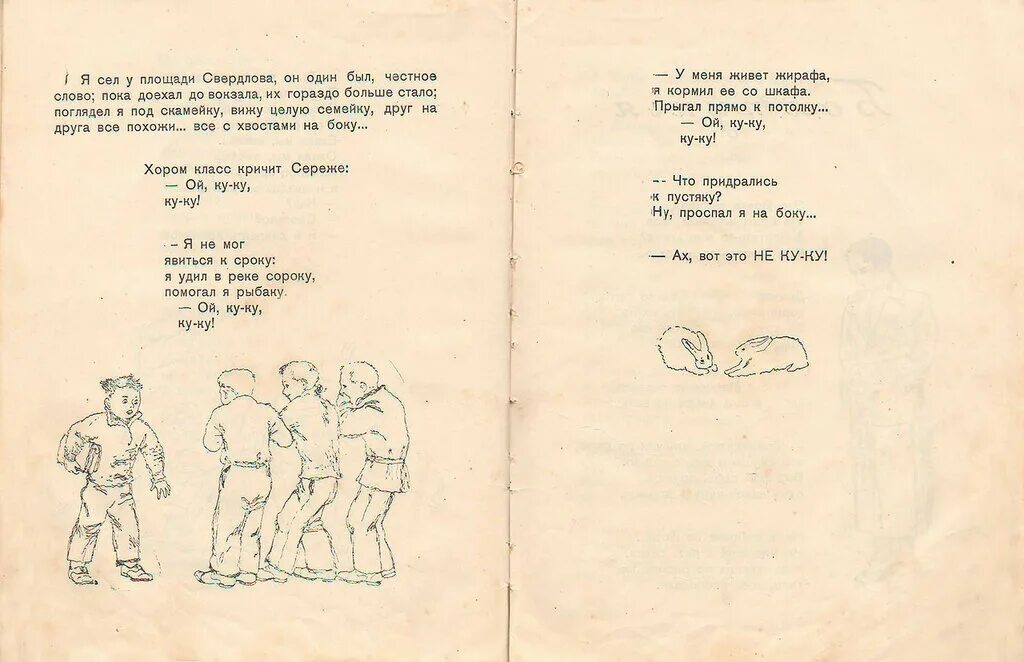 Я сел у площади Свердлова, он один был, честное
слово; пока доехал до вокзала, их гораздо больше стало;
поглядел я под скамейку, вижу целую семейку, друг на
друга все похожи... все с хвостами на боку...
Хором класс кричит Сереже:
— Ой, ку-ку,
ку-ку!
– Я не мог
явиться к сроку:
я удил в реке сороку,
помогал я рыбаку.
— Ой, ку-ку,
ку-ку!
— У меня живет жирафа,
я кормил ее со шкафа.
Прыгал прямо к потолку...
— Ой, ку-ку,
ку-ку!
-- Что придрались
к пустяку?
Ну, проспал я на боку...
— Ах, вот это НЕ КУ-КУ!